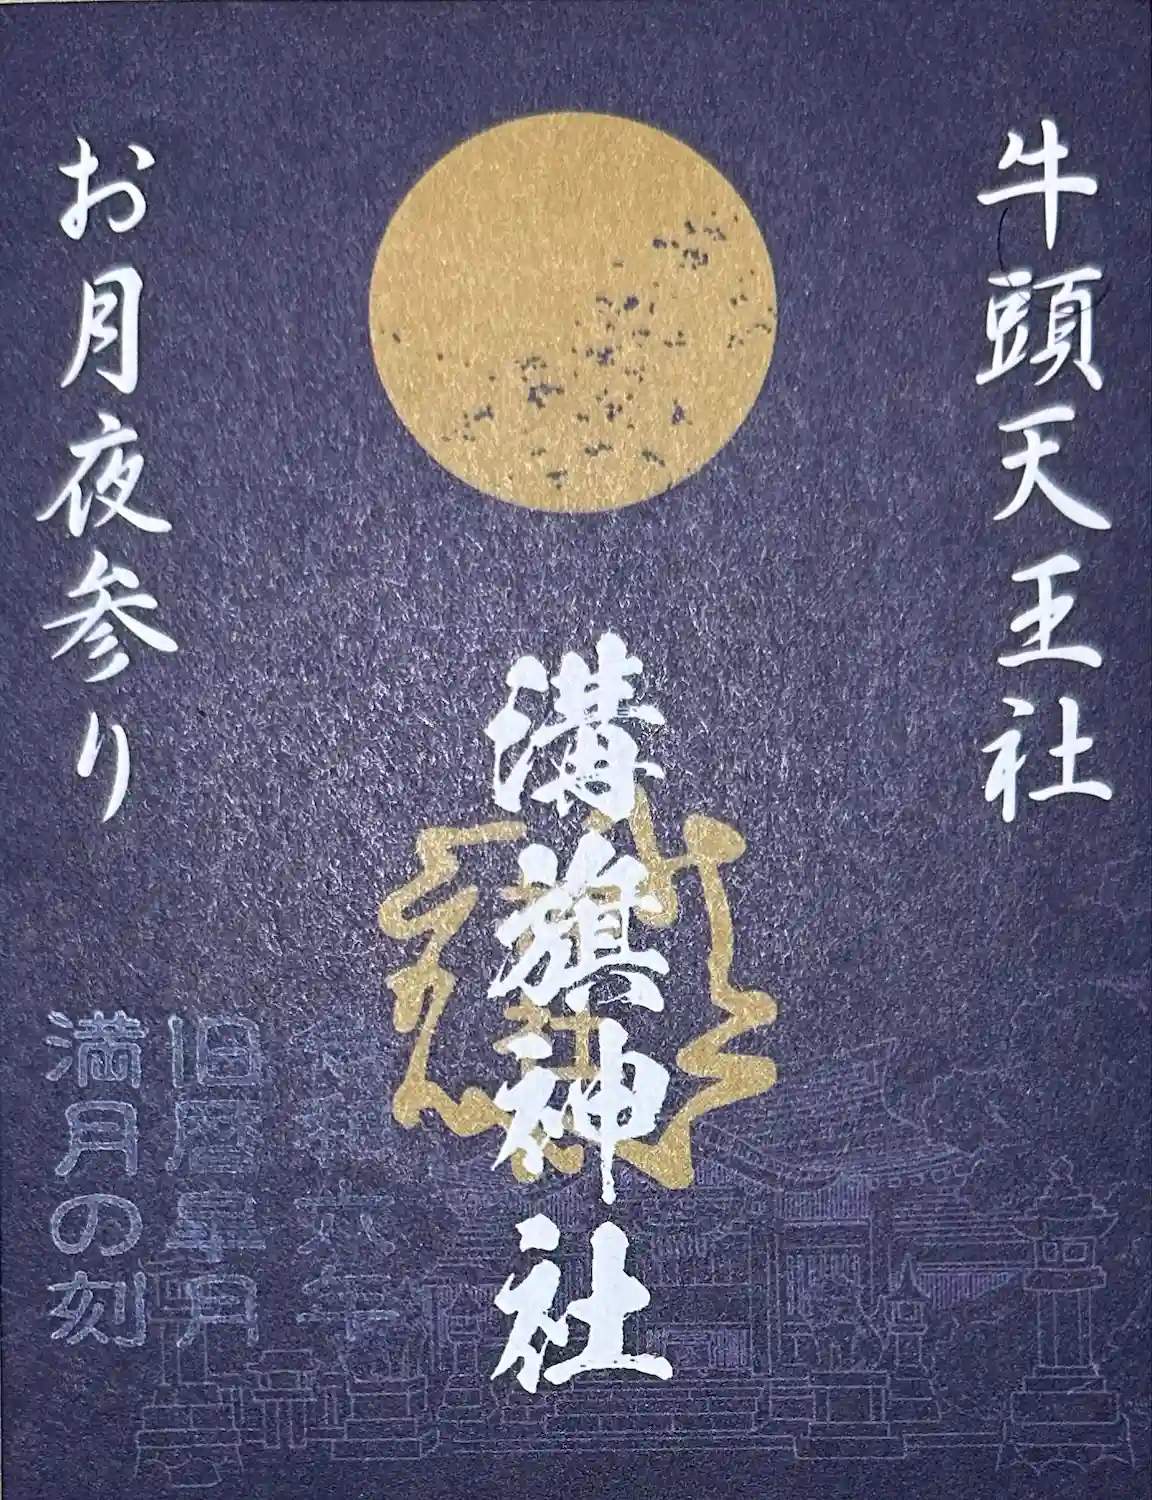 牛頭天王社
溝旗神社
お月夜参り
令和六年
旧暦皐月
満月の刻